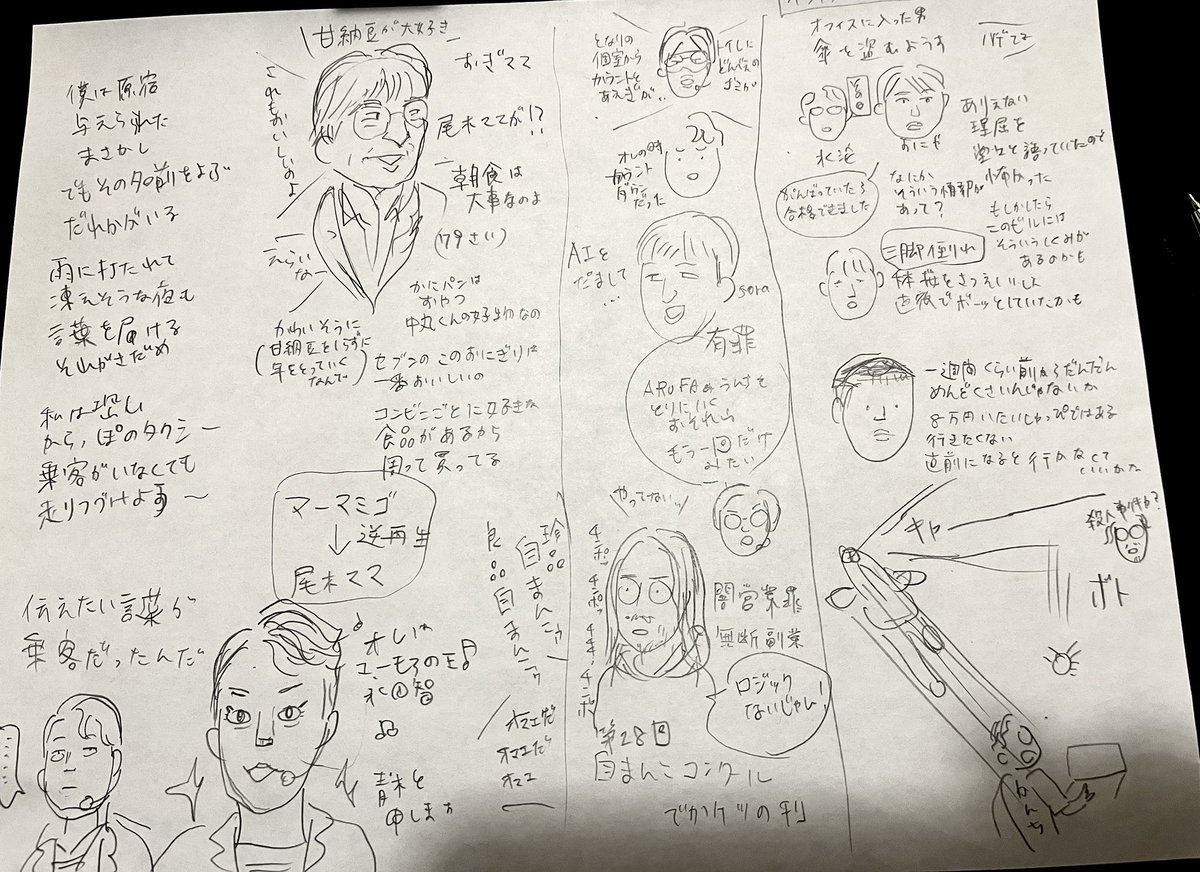 僕は原宿
与えられた
まさかし
でもその名前をよぶ
だれかがいる
雨に打たれて
凍えそうな夜も
言葉を届ける
それがさだめ
私は悲しい
からっぽのタクシー
乗客がいなくても
走りつづけよう〜
伝えたい言葉が
乗客だったんだ
甘納豆が大好き
これもおいしいのよ
おぎママ
尾木ママが!?
朝食は
大事なのよ
(79さい)
えらい
なー
かわいそうに
甘納豆をしらずに
年をとっていく
なんて
かにパンは
おやつ
中丸くんの好物なの
セブンのこのおにぎりは
一番おいしいの
コンビニごとに好きな
食品があるから
周って買ってる
マーマミゴ
↓逆再生
尾木ママ
オレは
ユーモアの王
永田智
青木と
申します
珍品
自まんこゥー
良品
自まんこゥー
オマエだ
オマエだ
オマエ
となりの
個室から
カウントと
あえぎが..
トイレに
どんべえの
ゴミが
オレの時
カウント
ダウン
だった
AIを
だまして
...
sora
有罪
ARuFAのうんちを
とりにいく
おそれ山
もう一回だけ
みたい
やってないッ
チンポッ チンポッ チチチ、チンポ
闇営業罪
無断副業
ロジック
ないじゃん!
第28回
自まんこコンクール
でかケツの刑
オフィスに入った男
傘を盗むようす
ハゲてる
永沼
おにや
ありえない
理屈を
堂々と語っていたので
怖かった
もしかしたら
このビルには
そういうしくみが
あるのかも
がんばっていたら
合格できました
なにか
そういう情報が
あって?
三脚倒れ
体操をさつえいし
直後でボーッとしていたかも
一週間くらい前からだんだん
めんどくさいんじゃないか
8万円いたいしゅっぴではある
行きたくない
直前になると行かなくて
いいかな
キャー
殺人事件か?
ボト
かんち